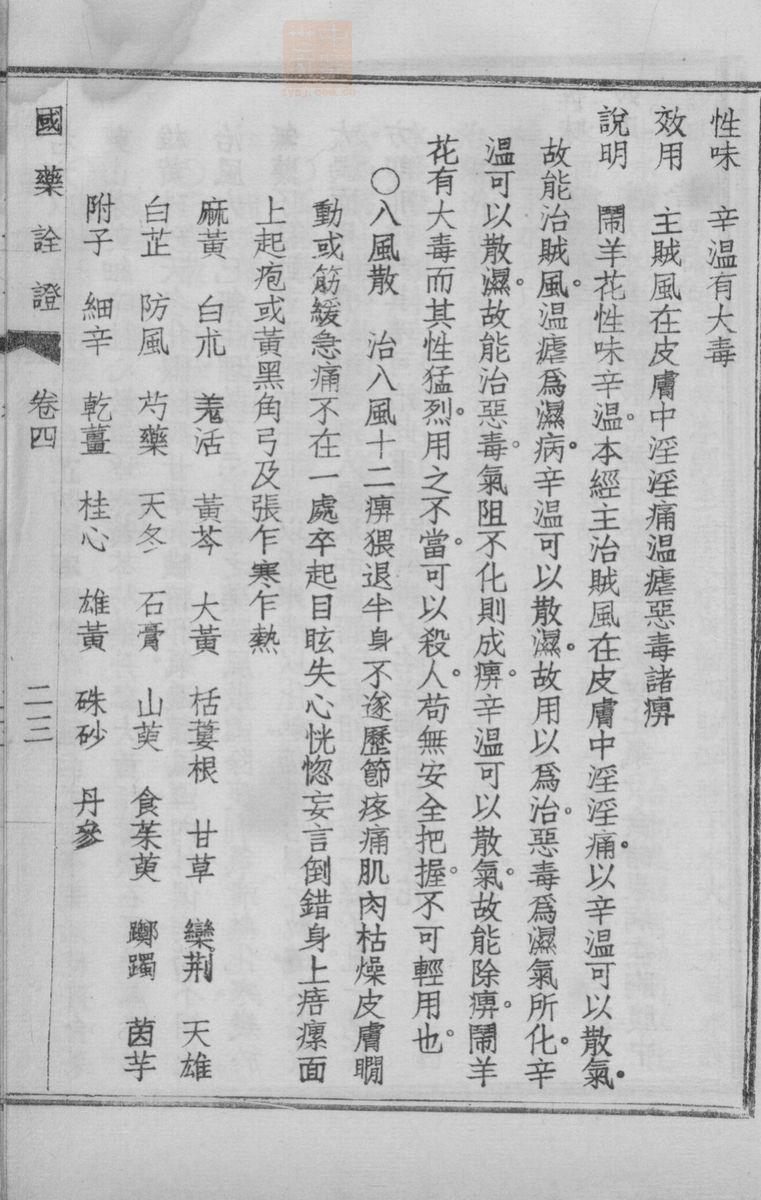 性味　辛温有大毒
效用　主賊風在皮膚中淫淫痛温瘧惡毒諸痹
說明　鬧羊花性味辛温。本經主治賊風在皮膚中淫淫痛。以辛温可以散氣。
故能治賊風。温瘧爲濕病。辛温可以散濕。故用以爲治。惡毒爲濕氣所化。辛
温可以散濕。故能治惡毒。氣阻不化則成痹。辛温可以散氣。故能除痹。鬧羊
花有大毒而其性猛烈。用之不當。可以殺人。苟無安全把握。不可輕用也。
〇八風散　治八風十二痹猥退半身不遂歷節疼痛肌肉枯燥皮膚瞤
動或筋緩急痛不在一處卒起目眩失心恍惚妄言倒錯身上㾦瘰面
上起疱或黃黑角弓及張乍寒乍熱
麻黃　白朮　羌活　黃芩　大黃　栝蔞根　甘草　欒荆　天雄
白芷　防風　芍藥　天冬　石膏　山萸　食茱萸　躑躅　茵芋
附子　細辛　乾薑　桂心　雄黃　硃砂　丹參
國藥詮證　卷四　二三